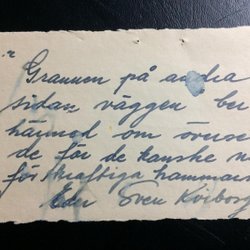 Grannen på andra
sidan väggen ber
härmed om överse
de för de kanske
för kraftiga hammars
Eder Sven